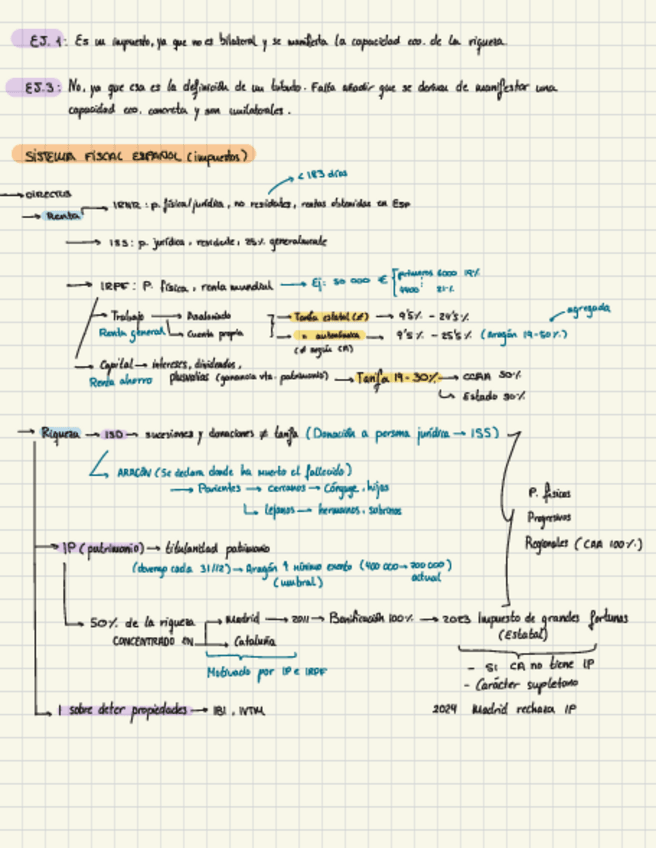 EJ. 1: Es un impuesto, ya que no es bilateral y se manifiesta la capacidad eco. de la riqueza.
EJ.3: No, ya que esa es la definición de un tributo. Falta añadir que se derivan de manifestar una
capacidad eco. concreta y son unilaterales.
SISTEMA FISCAL ESPAÑOL (impuestos)
< 183 días
→ DIRECTOS
→ Renta → IRNR: p. física/jurídica, no residentes, rentas obtenidas en ESP
→ ISS: p. jurídica, residente, 25% generalmente
→ IRPF: P. física, renta mundial → Ej: 50 000 € { primeros 6000 19%
4400 21%
→ Trabajo → Asalariado
Renta general → Cuenta propia
→ Tarifa estatal (≠) → 9'5% - 24'5%
→ " autonómica → 9'5% - 25'5% (Aragón 19-50%)
agregada
(≠ según CA)
→ Capital → intereses, dividendos,
Renta ahorro plusvalías (ganancia vta. patrimonio) → Tarifa 19-30% → CCAA 50%
→ Estado 50%
→ Riqueza → ISD → sucesiones y donaciones ≠ tarifa (Donación a persona jurídica → ISS)
ARAGÓN (Se declara donde ha muerto el fallecido)
→ Parientes → cercanos → Cónyuge, hijos
→ lejanos → hermanos, sobrinos
P. físicas
Progresivos
Regionales (CAA 100%)
→ IP (patrimonio) → titularidad patrimonio
(devengo cada 31/12) → Aragón ↑ mínimo exento (400 000 → 700 000)
(umbral) actual
→ 50% de la riqueza
CONCENTRADO EN
→ Madrid → 2011 → Bonificación 100% → 2023 Impuesto de grandes fortunas
(Estatal)
→ Cataluña
Motivado por IP e IRPF
- Si CA no tiene IP
- Carácter supletorio
→ I sobre deter propiedades → IBI, IVTM
2024 Madrid rechaza IP